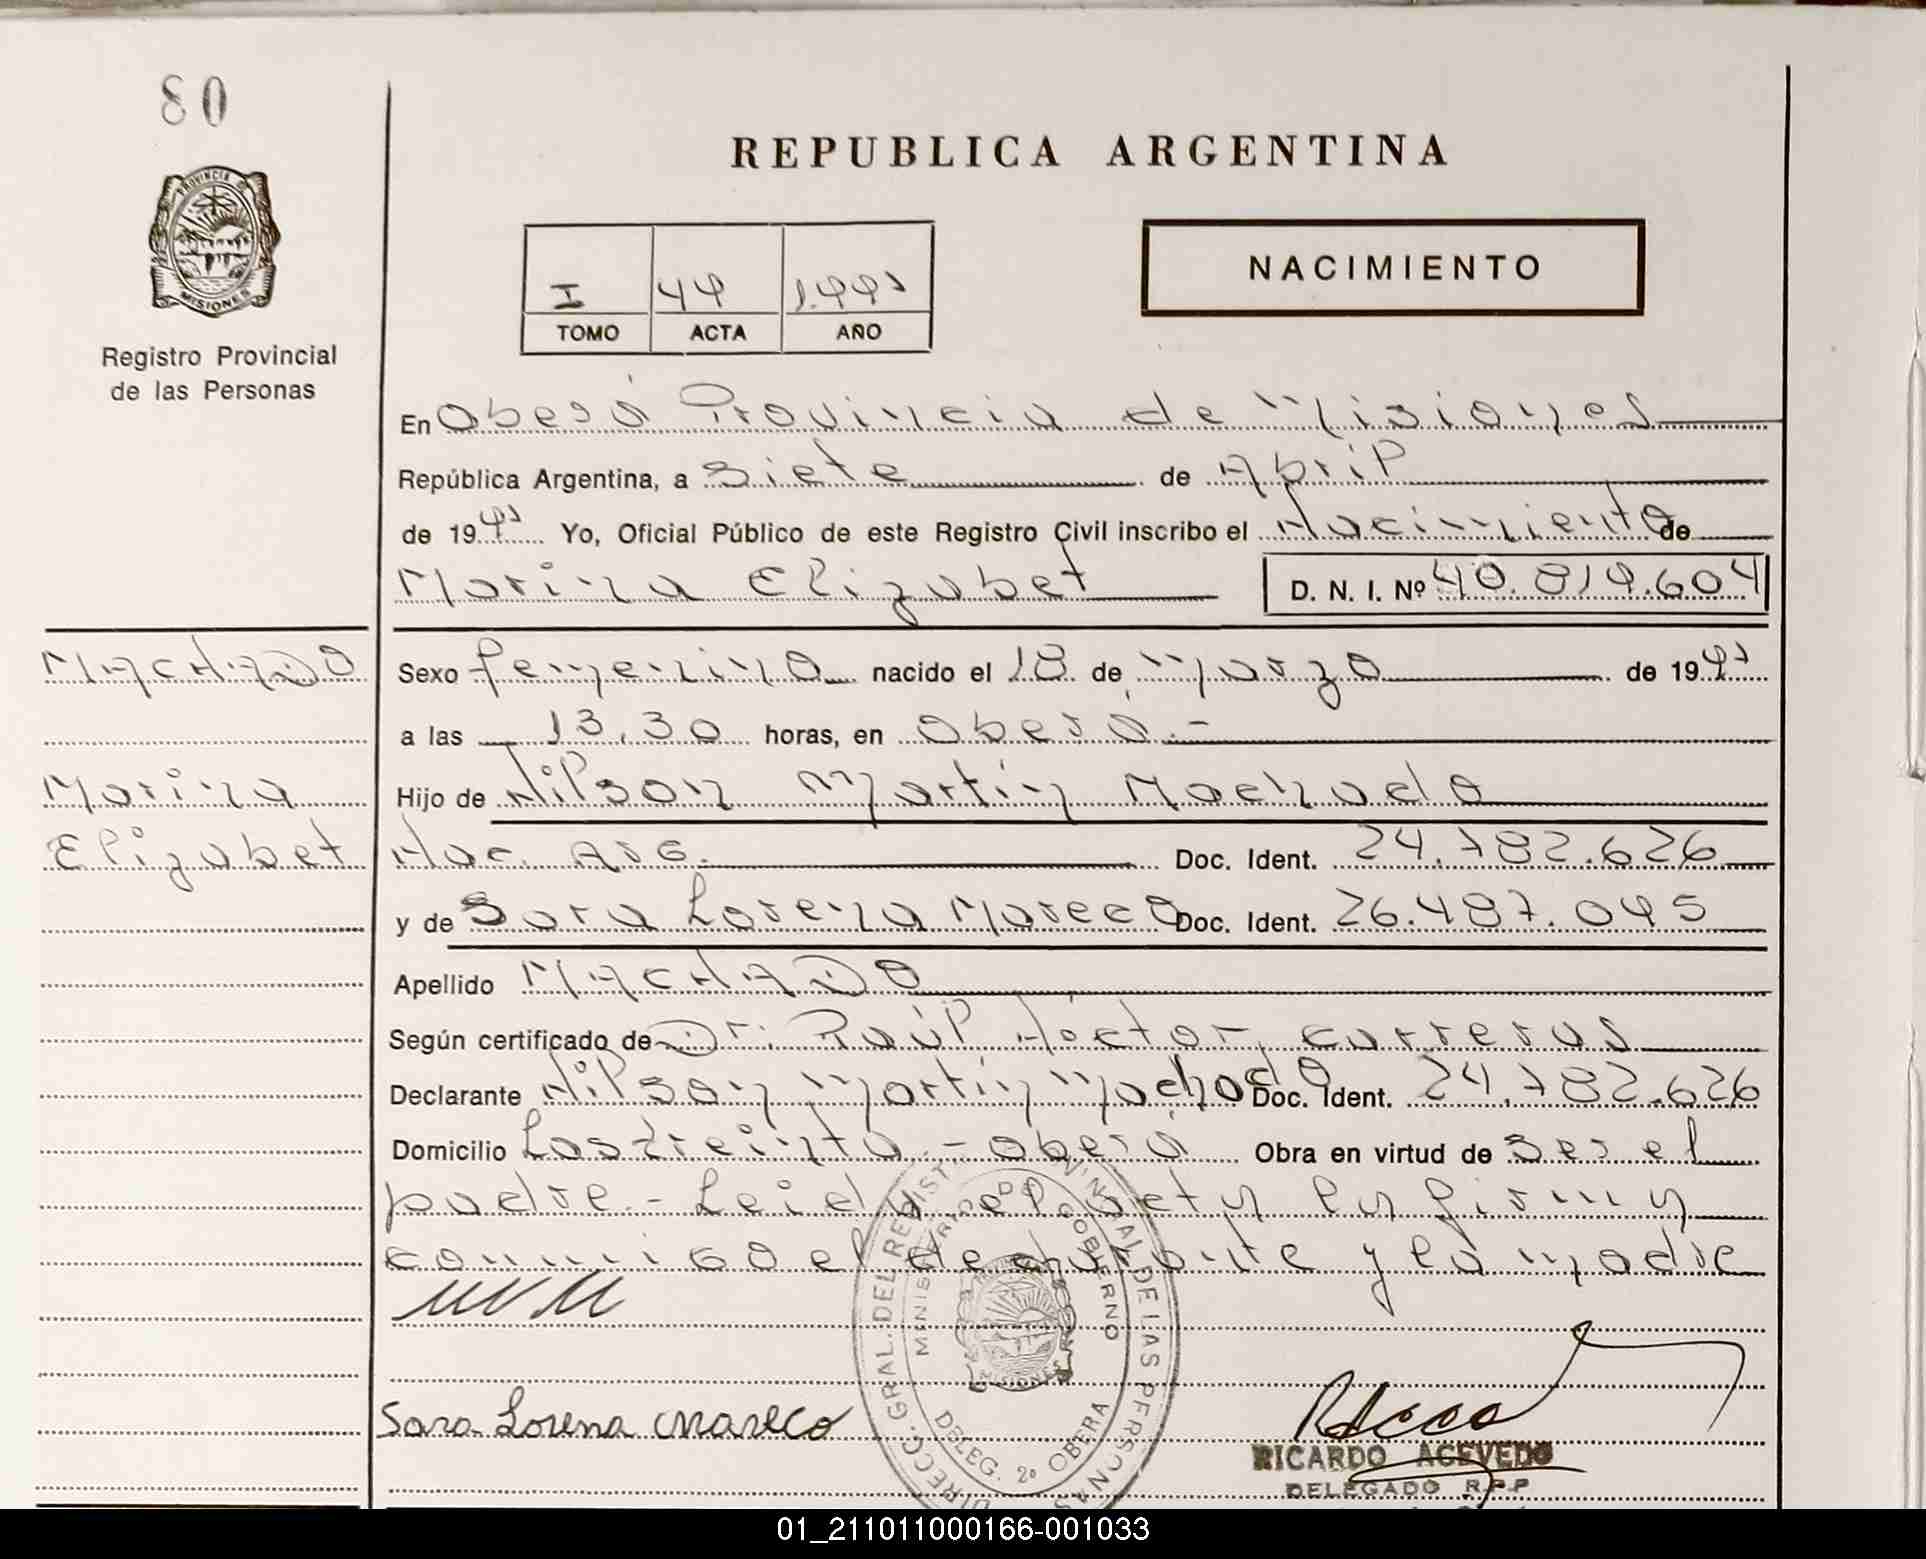 80
REPUBLICA ARGENTINA
PROVINCIA DE
MISIONES
Registro Provincial
de las Personas
I 44
TOMO ACTA AÑO
NACIMIENTO
En Oberá Provincia de Misiones
República Argentina, a siete de Abril
de 19 Yo, Oficial Público de este Registro Civil inscribo el Nacimiento de
Marina Elizabet D. N. I. Nº 40.819.604
MACHADO
Sexo femenino nacido el 18 de marzo de 19
a las 13,30 horas, en Oberá.-
Marina
Hijo de Nilson Martín Machado
Elizabet
Nac. Arg. Doc. Ident. 24.782.626
y de Sara Lorena Mareco Doc. Ident. 26.487.045
Apellido MACHADO
Según certificado de Dr. Raúl Héctor Carreras
Declarante Nilson Martín Machado Doc. Ident. 24.782.626
Domicilio Los treinta - Oberá Obra en virtud de ser el
padre - Leida el acta la firman
conmigo el declarante y la madre
DIRECC. GRAL. DEL REGISTRO PROVINCIAL DE LAS PERSONAS
MINISTERIO DE GOBIERNO
MISIONES
DELEG. 2º OBERA
Sara Lorena Mareco
RICARDO ACEVEDO
DELEGADO R.P.P
01_211011000166-001033